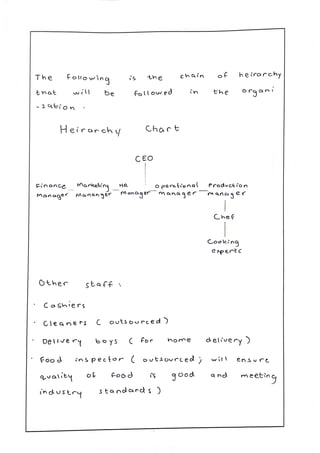 The Following is the chain of heirarchy
that will be followed in the organi
-sation.
Heirarchy Chart
CEO
Finance Marketing HR Operational Production
Manager Mananger Manager manager manager
Chef
Cooking
experts
Other staff :
· Cashiers
· Cleaners ( outsourced )
· Delivery boys ( for home delivery )
· Food inspector ( outsourced ; will ensure
quality of food is good and meeting
industry standards )